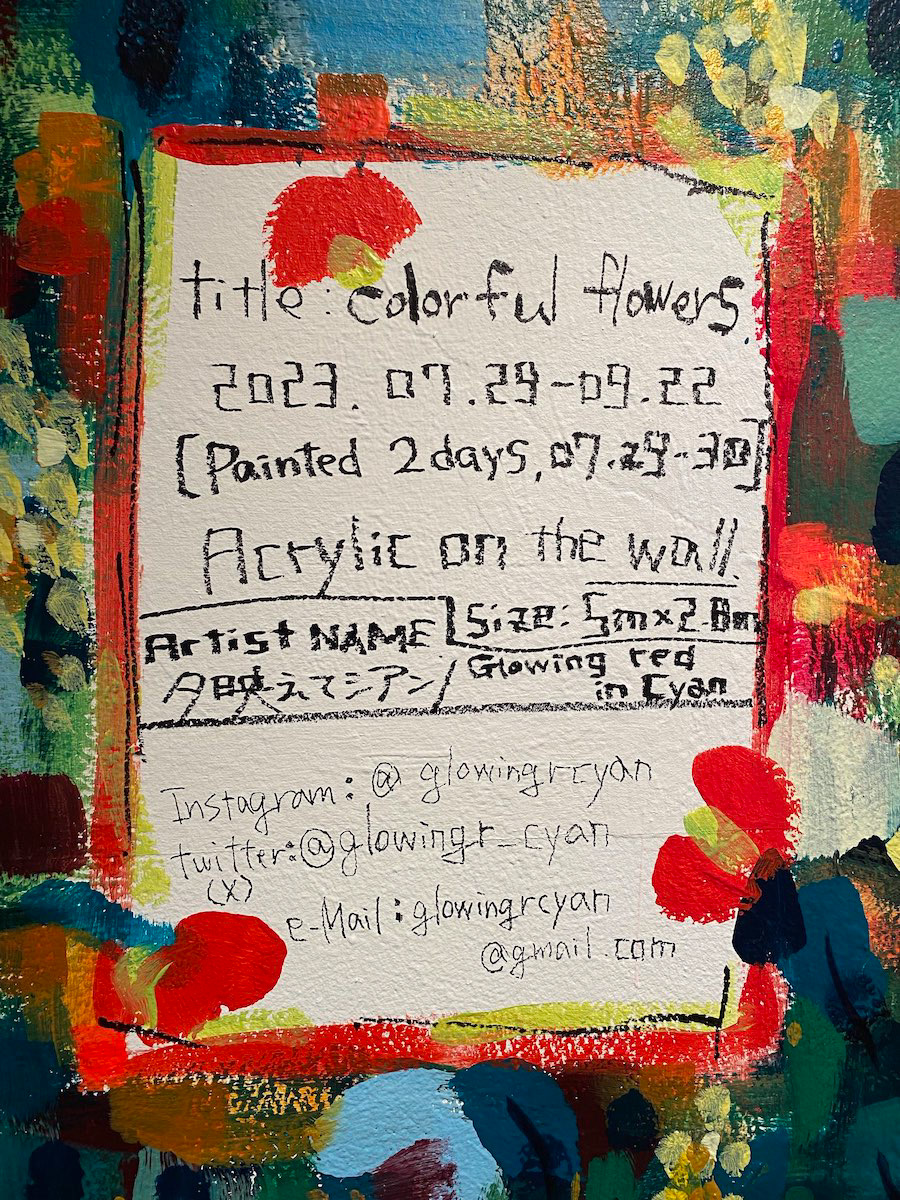 title: colorful flowers
2023. 07.29-09.22
[Painted 2days, 07.29-30]
Acrylic on the wall.
Artist NAME
Size: 5m×2.8m
夕映えてシアン/
Glowing red
in Cyan
Instagram: @glowingrcyan
twitter:@glowingr_cyan
(X)
e-Mail:glowingrcyan
@gmail.com